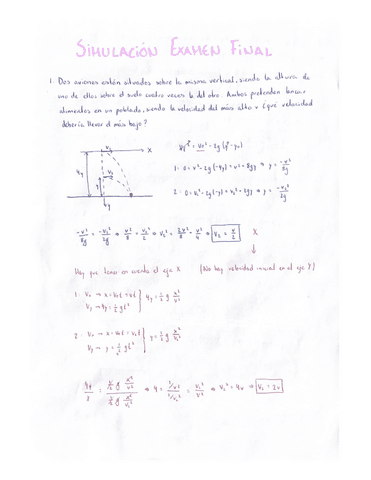 SIMULACIÓN EXAMEN FINAL
1. Dos aviones están situados sobre la misma vertical, siendo la altura de
uno de ellos sobre el suelo cuatro veces la del otro. Ambos pretenden lanzar
alimentos en un poblado, siendo la velocidad del más alto v ¿qué velocidad
debería llevar el más bajo?
V₁ X
4y y
Vf² = Vo² - 2g (y - y₀)
1: 0 = v² - 2g (-4y) = v² + 8gy ⇒ y = -v²/8g
2: 0 = v₂² - 2g (-y) = v₂² + 2gy ⇒ y = -v₂²/2g
-v²/8g = -v₂²/2g ⇒ v²/8 = v₂²/2 ⇒ v₂² = 2v²/8 = v²/4 ⇒ V₂ = v/2 X
Hay que tener en cuenta el eje X (No hay velocidad inicial en el eje Y)
1: Vx → x = v₀t = vt
Vy → 4y = 1/2 gt² } 4y = 1/2 g x²/v²
2: Vx → x = v₀t = v₂t
Vy → y = 1/2 gt² } y = 1/2 g x²/v₂²
4y/y = (1/2 g x²/v²)/(1/2 g x²/v₂²) ⇒ 4 = (1/v²)/(1/v₂²) = v₂²/v² ⇒ v₂² = 4v ⇒ V₂ = 2v